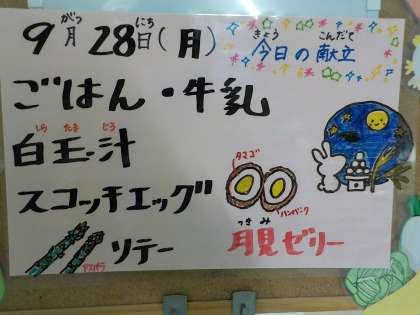 9月28日(月)
がつ
にち
きょう こんだて
今日の献立
ごはん・牛乳
しら たま じる
白玉汁
スコッチエッグ
タマゴ
ハンバーク
アスパラ
ソテー
つきみ
月見ゼリー